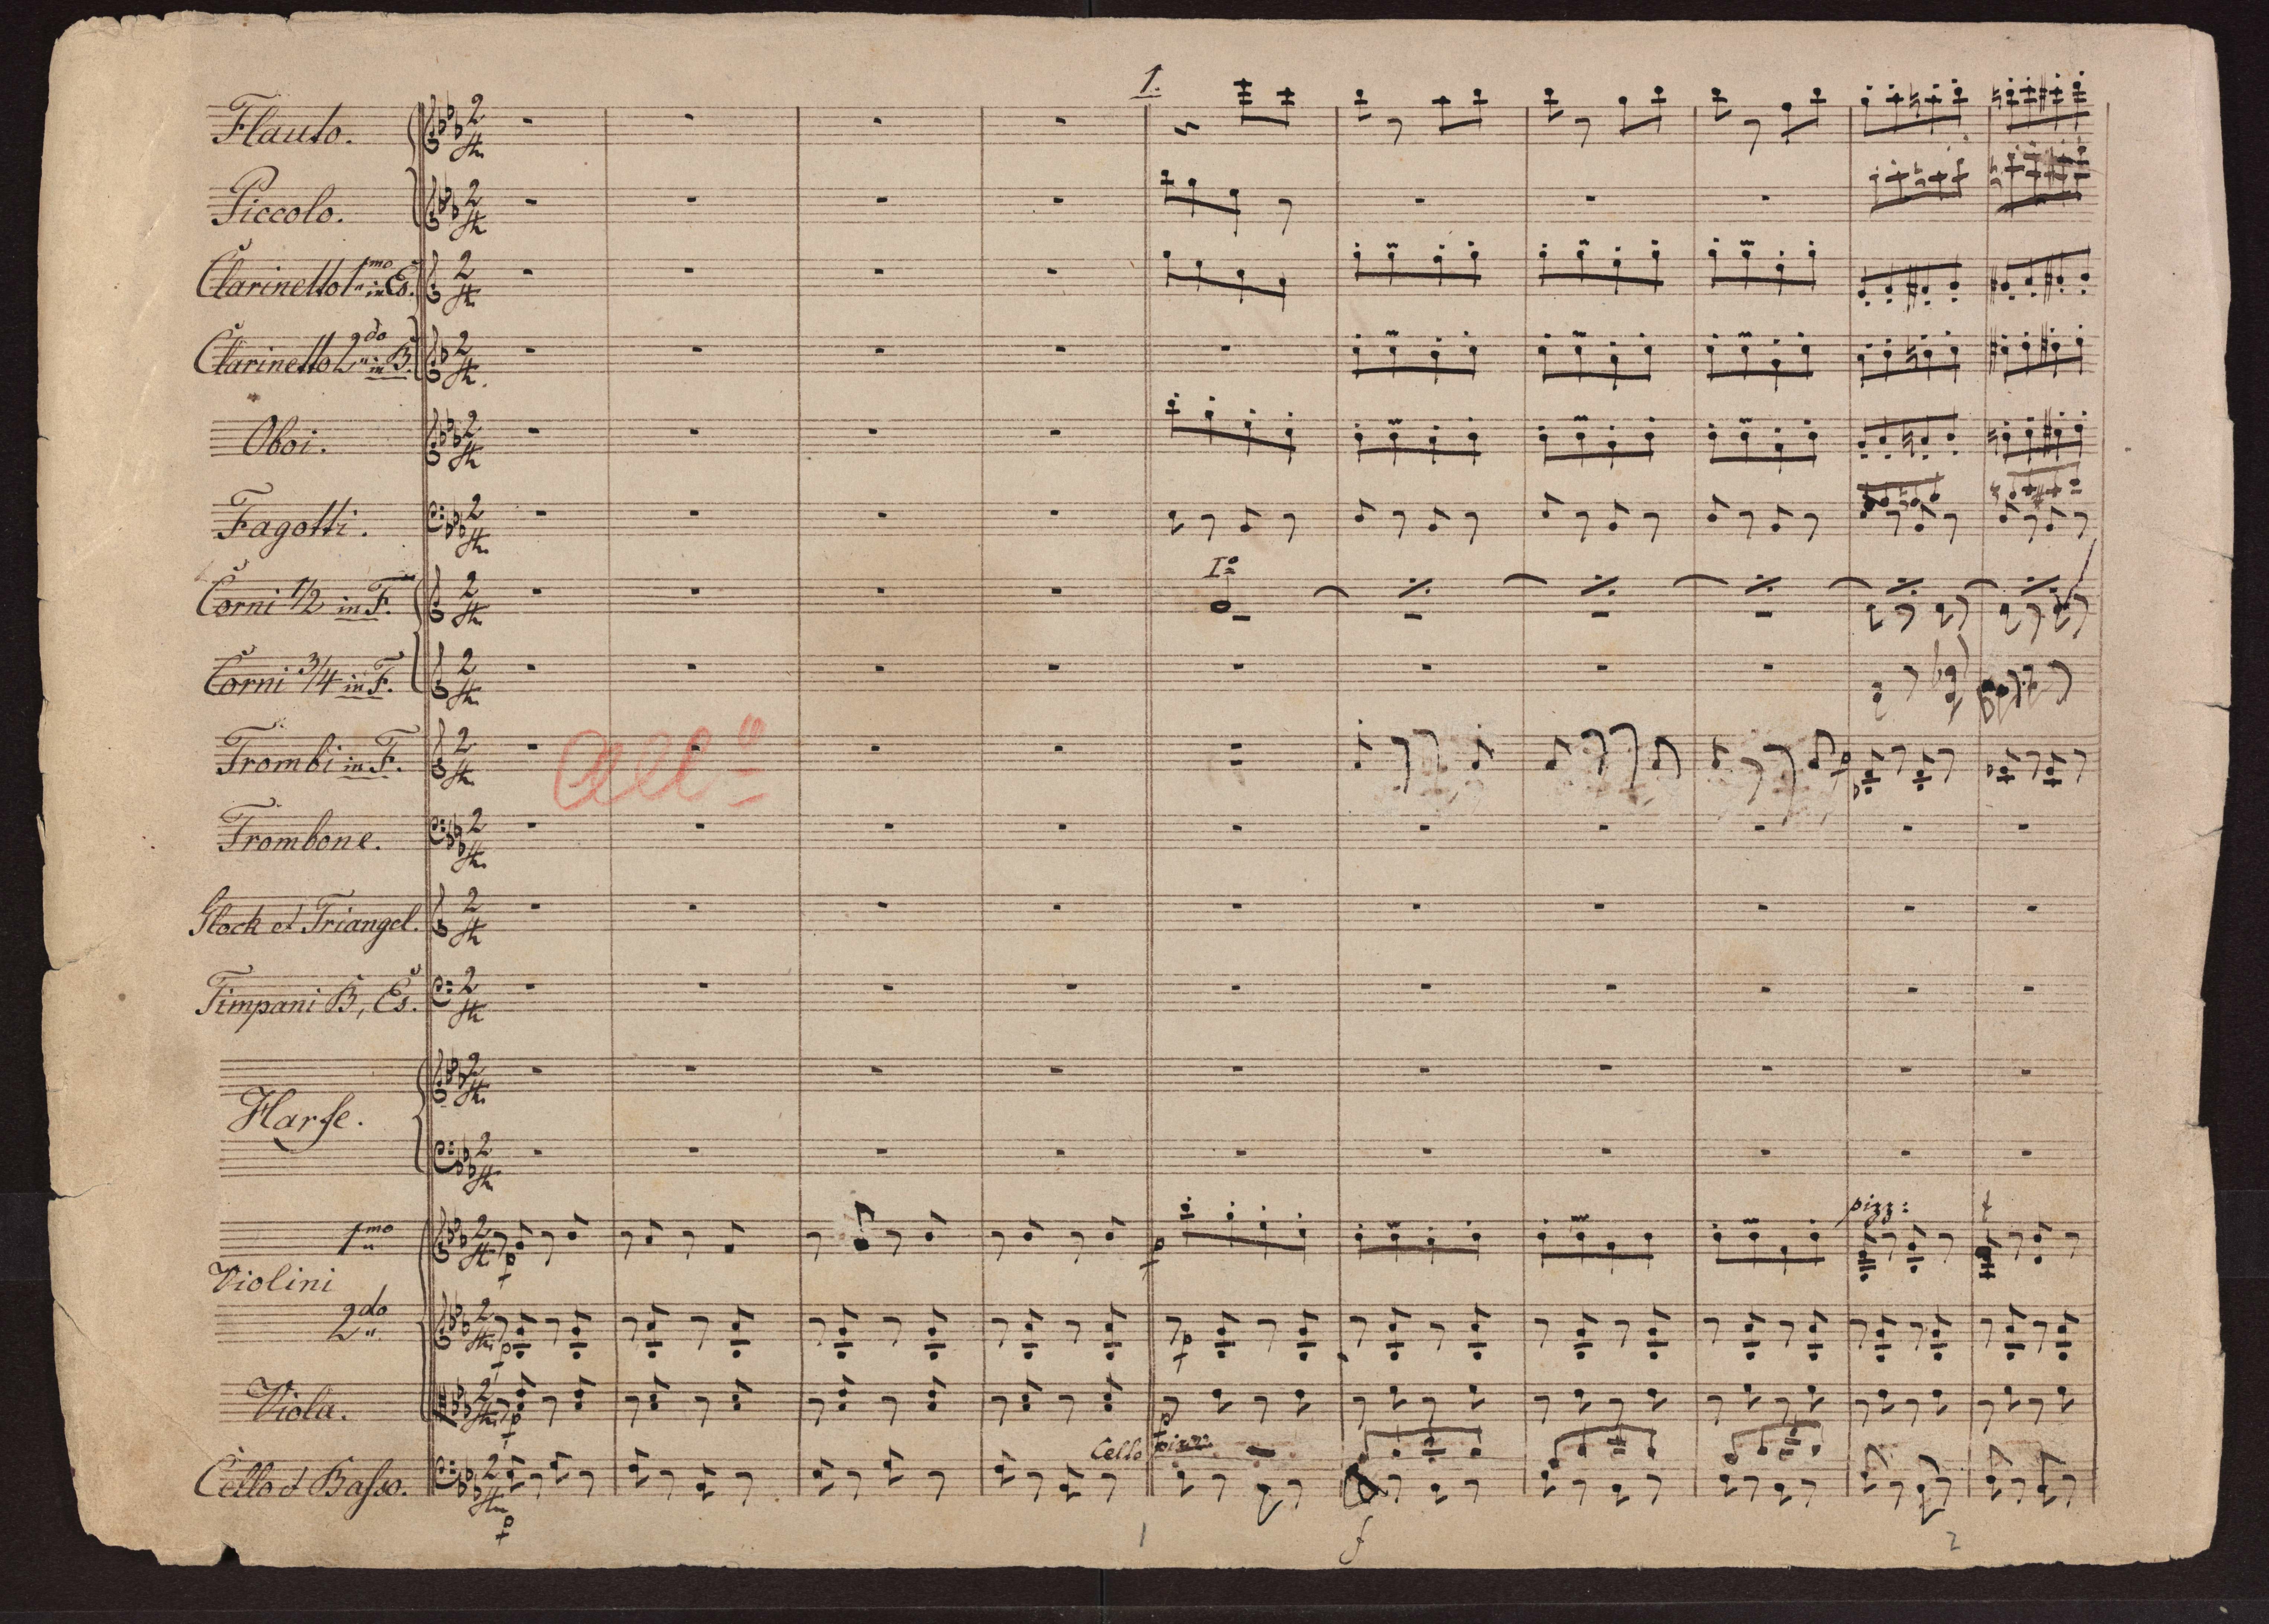 1.
Flauto.
Piccolo.
Clarinetto 1mo in Es.
Clarinetto 2do in B.
Oboi.
Fagotti.
Io
Corni 1/2 in F.
Corni 3/4 in F.
Allo
Trombi in F.
p
Trombone.
Glock et Triangel.
Timpani B, Es.
Harfe.
pizz: f
1mo
p p
Violini
2do
p p
Viola.
p p
Cello pizz
Cello et Basso.
p
1 f 2